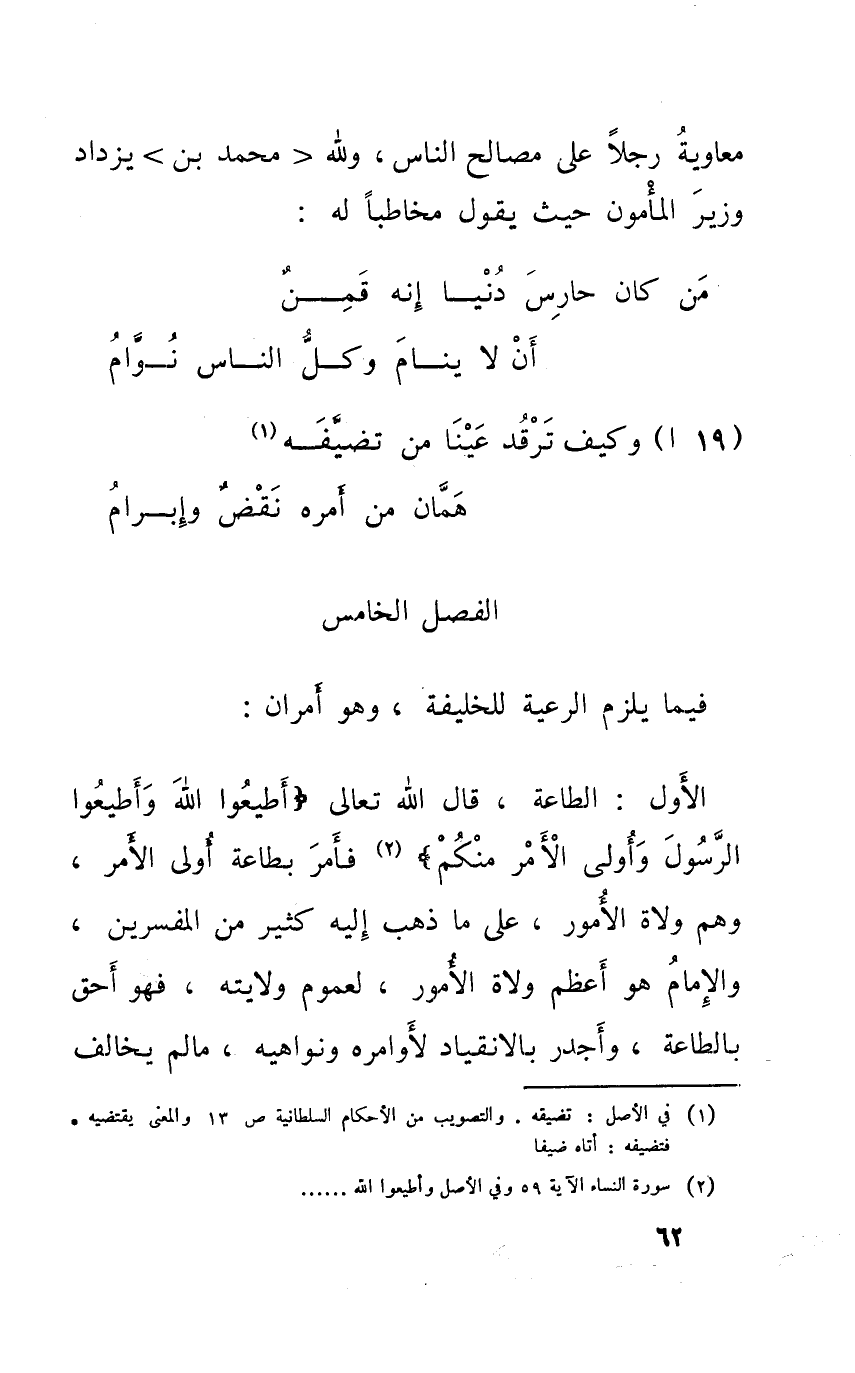 معاويةُ رجلاً على مصالح الناس ، ولله < محمد بن > يزداد
وزيرَ المأْمون حيث يقول مخاطباً له :
مَن كان حارسَ دُنْيـا إنه قَمِـــنٌ
أَنْ لا ينـامَ وكـلُّ النـاس نُـوَّامُ
(١٩ ا) وكيف تَرْقُد عَيْنَا من تضيَّفَـه (١)
هَمَّان من أَمره نَقْضٌ وإبـرامُ
الفصل الخامس
فيما يلزم الرعية للخليفة ، وهو أَمران :
الأَول : الطاعة ، قال الله تعالى ﴿أَطيعُوا اللهَ وَأَطيعُوا
الرَّسُولَ وَأُولى الْأَمْر منْكُمْ﴾ (٢) فأَمرَ بطاعة أُولى الأَمر ،
وهم ولاة الأُمور ، على ما ذهب إليه كثير من المفسرين ،
والإمامُ هو أَعظم ولاة الأُمور ، لعموم ولايته ، فهو أَحق
بالطاعة ، وأَجدر بالانقياد لأَوامره ونواهيه ، مالم يخالف
(١) في الأصل : تضيقه . والتصويب من الأحكام السلطانية ص ١٣ والمعنى يقتضيه .
فتضيفه : أتاه ضيفا
(٢) سورة النساء الآية ٥٩ وفي الأصل وأطيعوا الله ......
٦٢